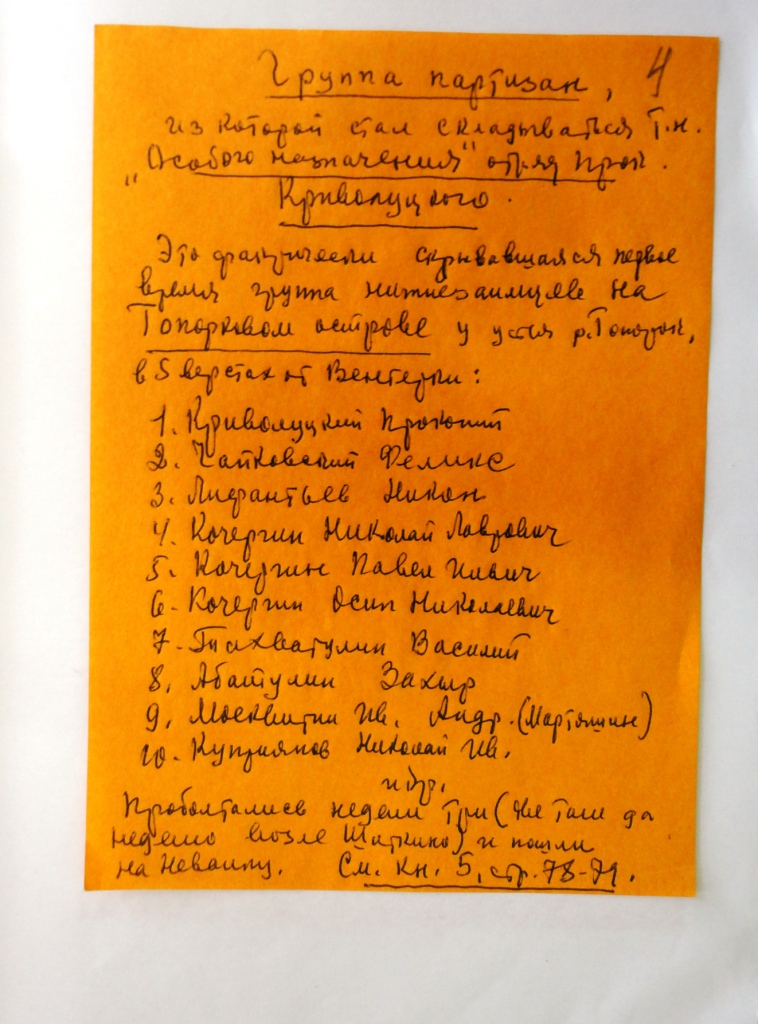 Группа партизан, 4
из которой стал складываться т.н.
„Особого назначения" отряд Прок.
Криволуцкого.
Это фактически скрывавшаяся первое
время группа нижнезаимцев на
Топорковом острове у устья р. Топорок,
в 5 верстах от Венгерки:
1. Криволуцкий Прокопий
2. Чайковский Феликс
3. Лифантьев Никон
4. Кочергин Николай Лаврович
5. Кочергин Павел
6. Кочергин Осип Николаевич
7. Василий
8. Абатулин Захыр
9. Москвитин Ив. Андр. (Мартяшин)
10. Куприянов Николай Ив.
и др.
Проболтались недели три (две там да
неделю возле Шиткино) и пошли
на Неванку. См. кн. 5, стр. 78-79.